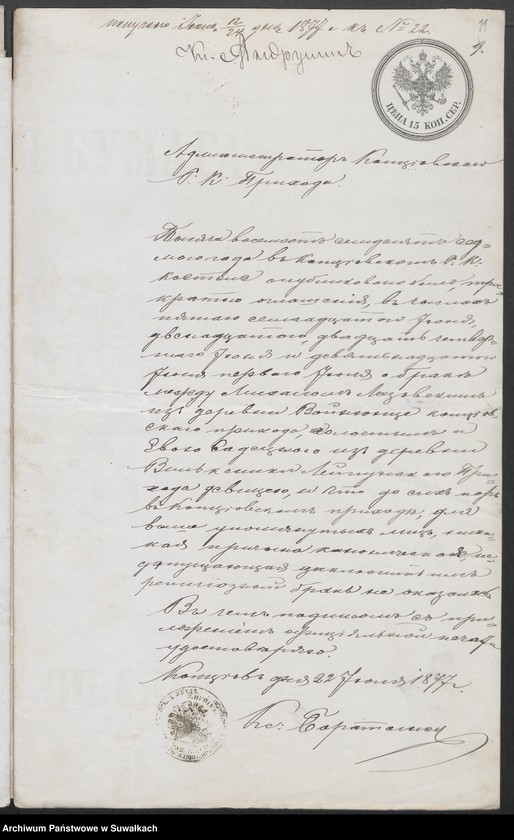 получено Іюня 12/24 дня 1877 г. къ № 22.
Кс. Андрушкъ
ЦѢНА 15 КОП. СЕР.
Администраторъ Концiовскаго
Р. К. Прихода.
Тысяча восемсотъ семдесятъ сед-
мого года въ Концiовскомъ Р. К.
костелѣ опубликовано было трое-
кратно оглашенія, въ числахъ
пятаго семнадцатого Іюня,
двенадцатого, двадцать четвер-
таго Іюня и девятнадцатого
Іюня первого Іюля о бракѣ
между Михаломъ
изъ деревни Концiов-
скаго прихода, холостымъ и
Евою изъ деревни
Лейпунскаго При-
хода девицею, и что до сихъ поръ
въ Концiовскомъ приходѣ, для
выше упомянутыхъ лицъ, ника-
кая причина каноническая, не
допущающая заключить имъ
религіозный бракъ не оказалась
Въ чемъ подписомъ съ при-
ложеніемъ офиціяльной печати
удостовѣряю.
Концiовъ дня 22 Іюня 1877 г.
Кс.
Archiwum Państwowe w Suwałkach